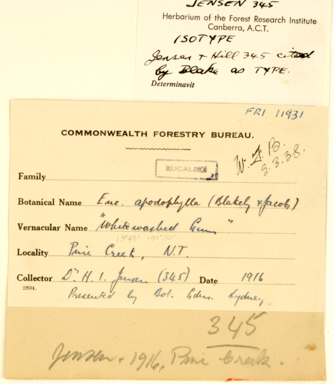 JENSEN 345
Herbarium of the Forest Research Institute
Canberra, A.C.T.
ISOTYPE
Jensen & Hill 345 cited
by Blake as TYPE.
Determinavit
FRI 11931
COMMONWEALTH FORESTRY BUREAU.
W.F.B.
3.3.38.
Family
Botanical Name Euc. apodophylla (Blakely & Jacobs)
Vernacular Name "Whitewashed Gum"
Locality Pine Creek, N.T.
Collector Dr H. I. Jensen (345) Date 1916
2694.
Presented by Bot. Gdns. Sydney.
345
Jensen. 1916, Pine Creek.